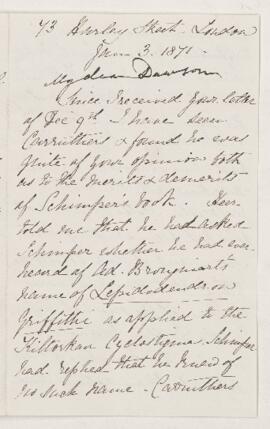 73 Harley Street. London
Jany 3. 1871.
My dear Dawson
Since I received your letter
of Dec 9th. I have seen
Carruthers & found he was
quite of your opinion both
as to the merits & demerits
of Schimper's book.
told me that he had asked
Schimper whether he had ever
heard of Ad. Brongniarts
name of Lepidodendron
Griffithii as applied to the
Kiltorkan Cyclostigma. Schimper
had replied that he knew of
no such name. Carruthers